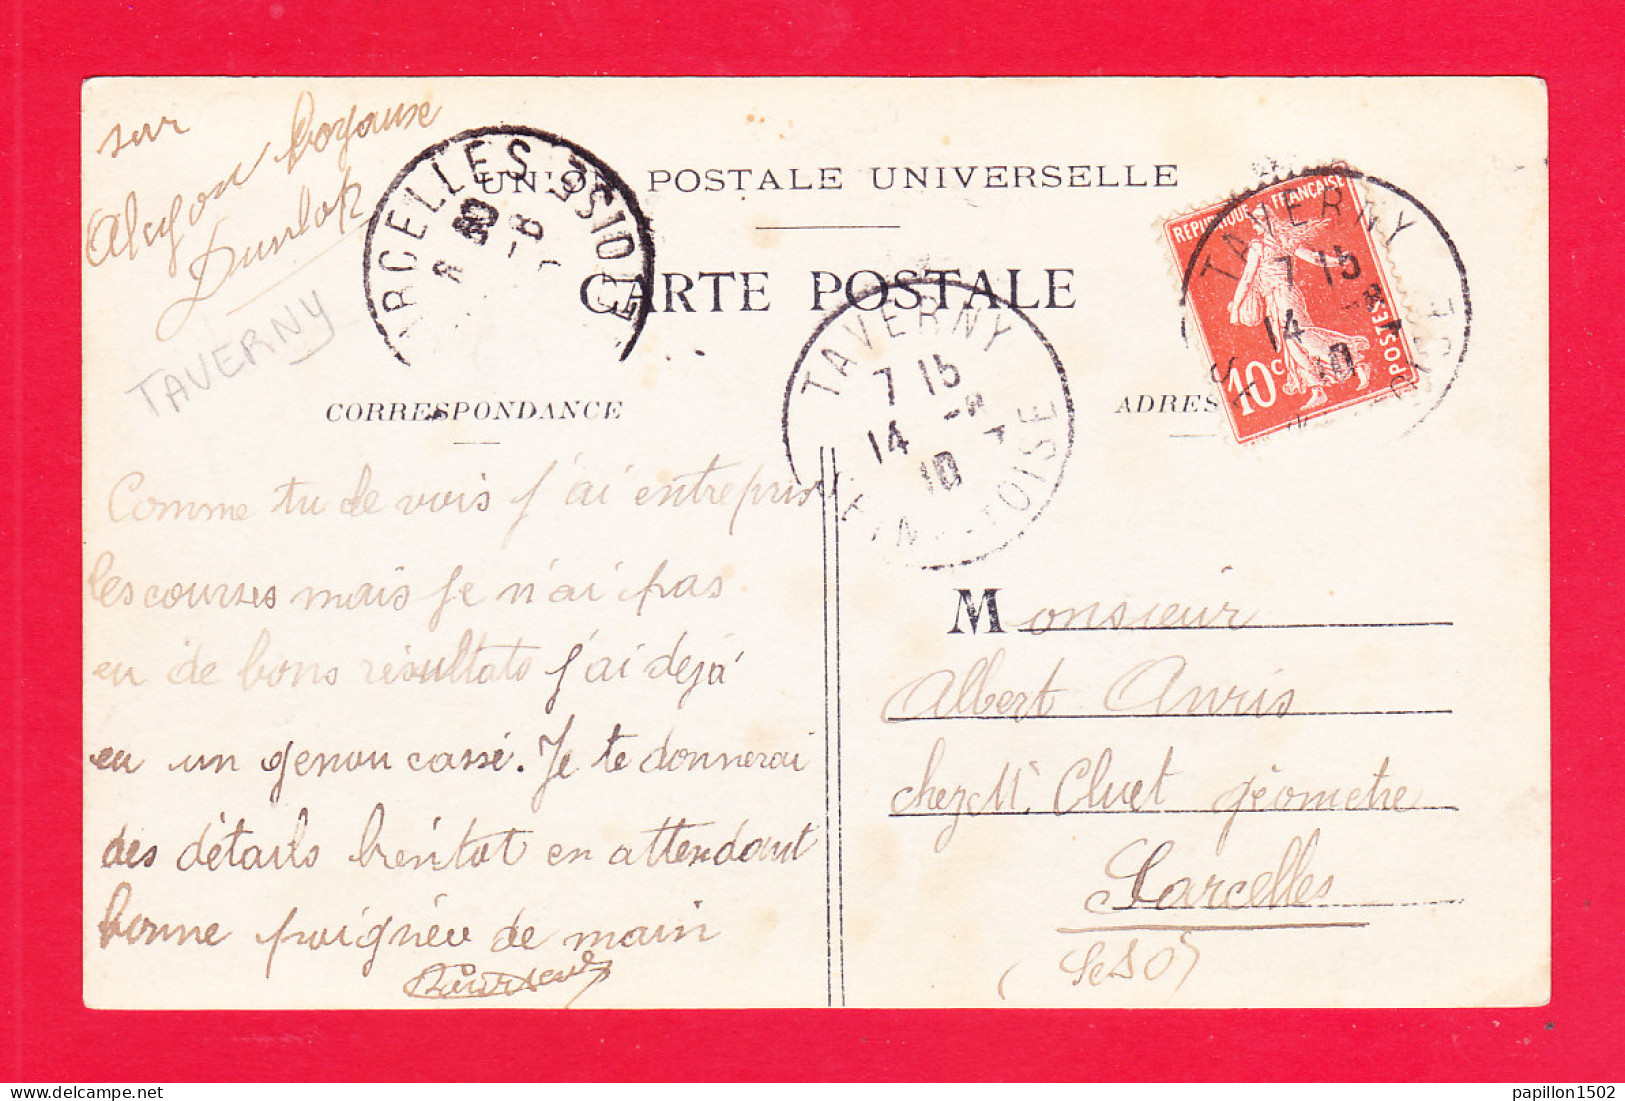 sur
Alcyon boyaux
Dunlop
TAVERNY
SARCELLES
S.-ET-OISE
UNION POSTALE UNIVERSELLE
CARTE POSTALE
CORRESPONDANCE
ADRES
RÉPUBLIQUE FRANÇAISE
POSTES
10c
TAVERNY
7 15
14 -8
10
SEINE-ET-OISE
TAVERNY
7 15
14 -8
10
OISE
Comme tu le vois j'ai entrepris
les courses mais je n'ai pas
eu de bons résultats j'ai dejà
eu un genou cassé. Je te donnerai
des détails bientôt en attendant
bonne poignée de main
Monsieur
Albert Anris
chez Mr Cluet géometre
Sarcelles
(S et O)
papillon1502